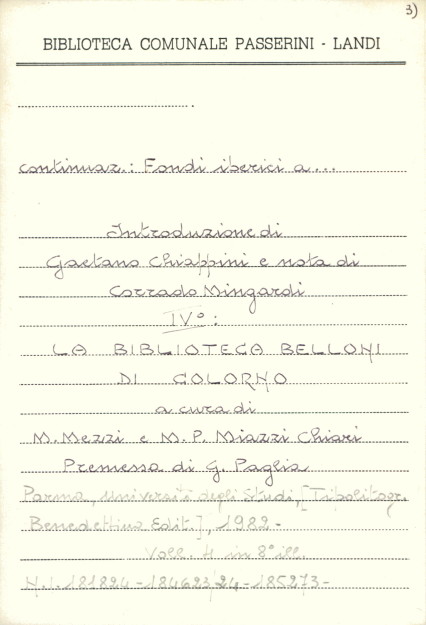 3)
BIBLIOTECA COMUNALE PASSERINI - LANDI
continuaz.: Fondi iberici a...
Introduzione di
Gaetano Chiappini e nota di
Corrado Mingardi
IVº:
LA BIBLIOTECA BELLONI
DI COLORNO
a cura di
M. Mezzi e M. P. Miazzi Chiari
Premessa di G. Paglia
Parma, Università degli Studi, [Tipolitogr.
Benedettina Edit.], 1982-
Voll. 4 in 8º ill.
N.I. 181824-184623/24-185273-